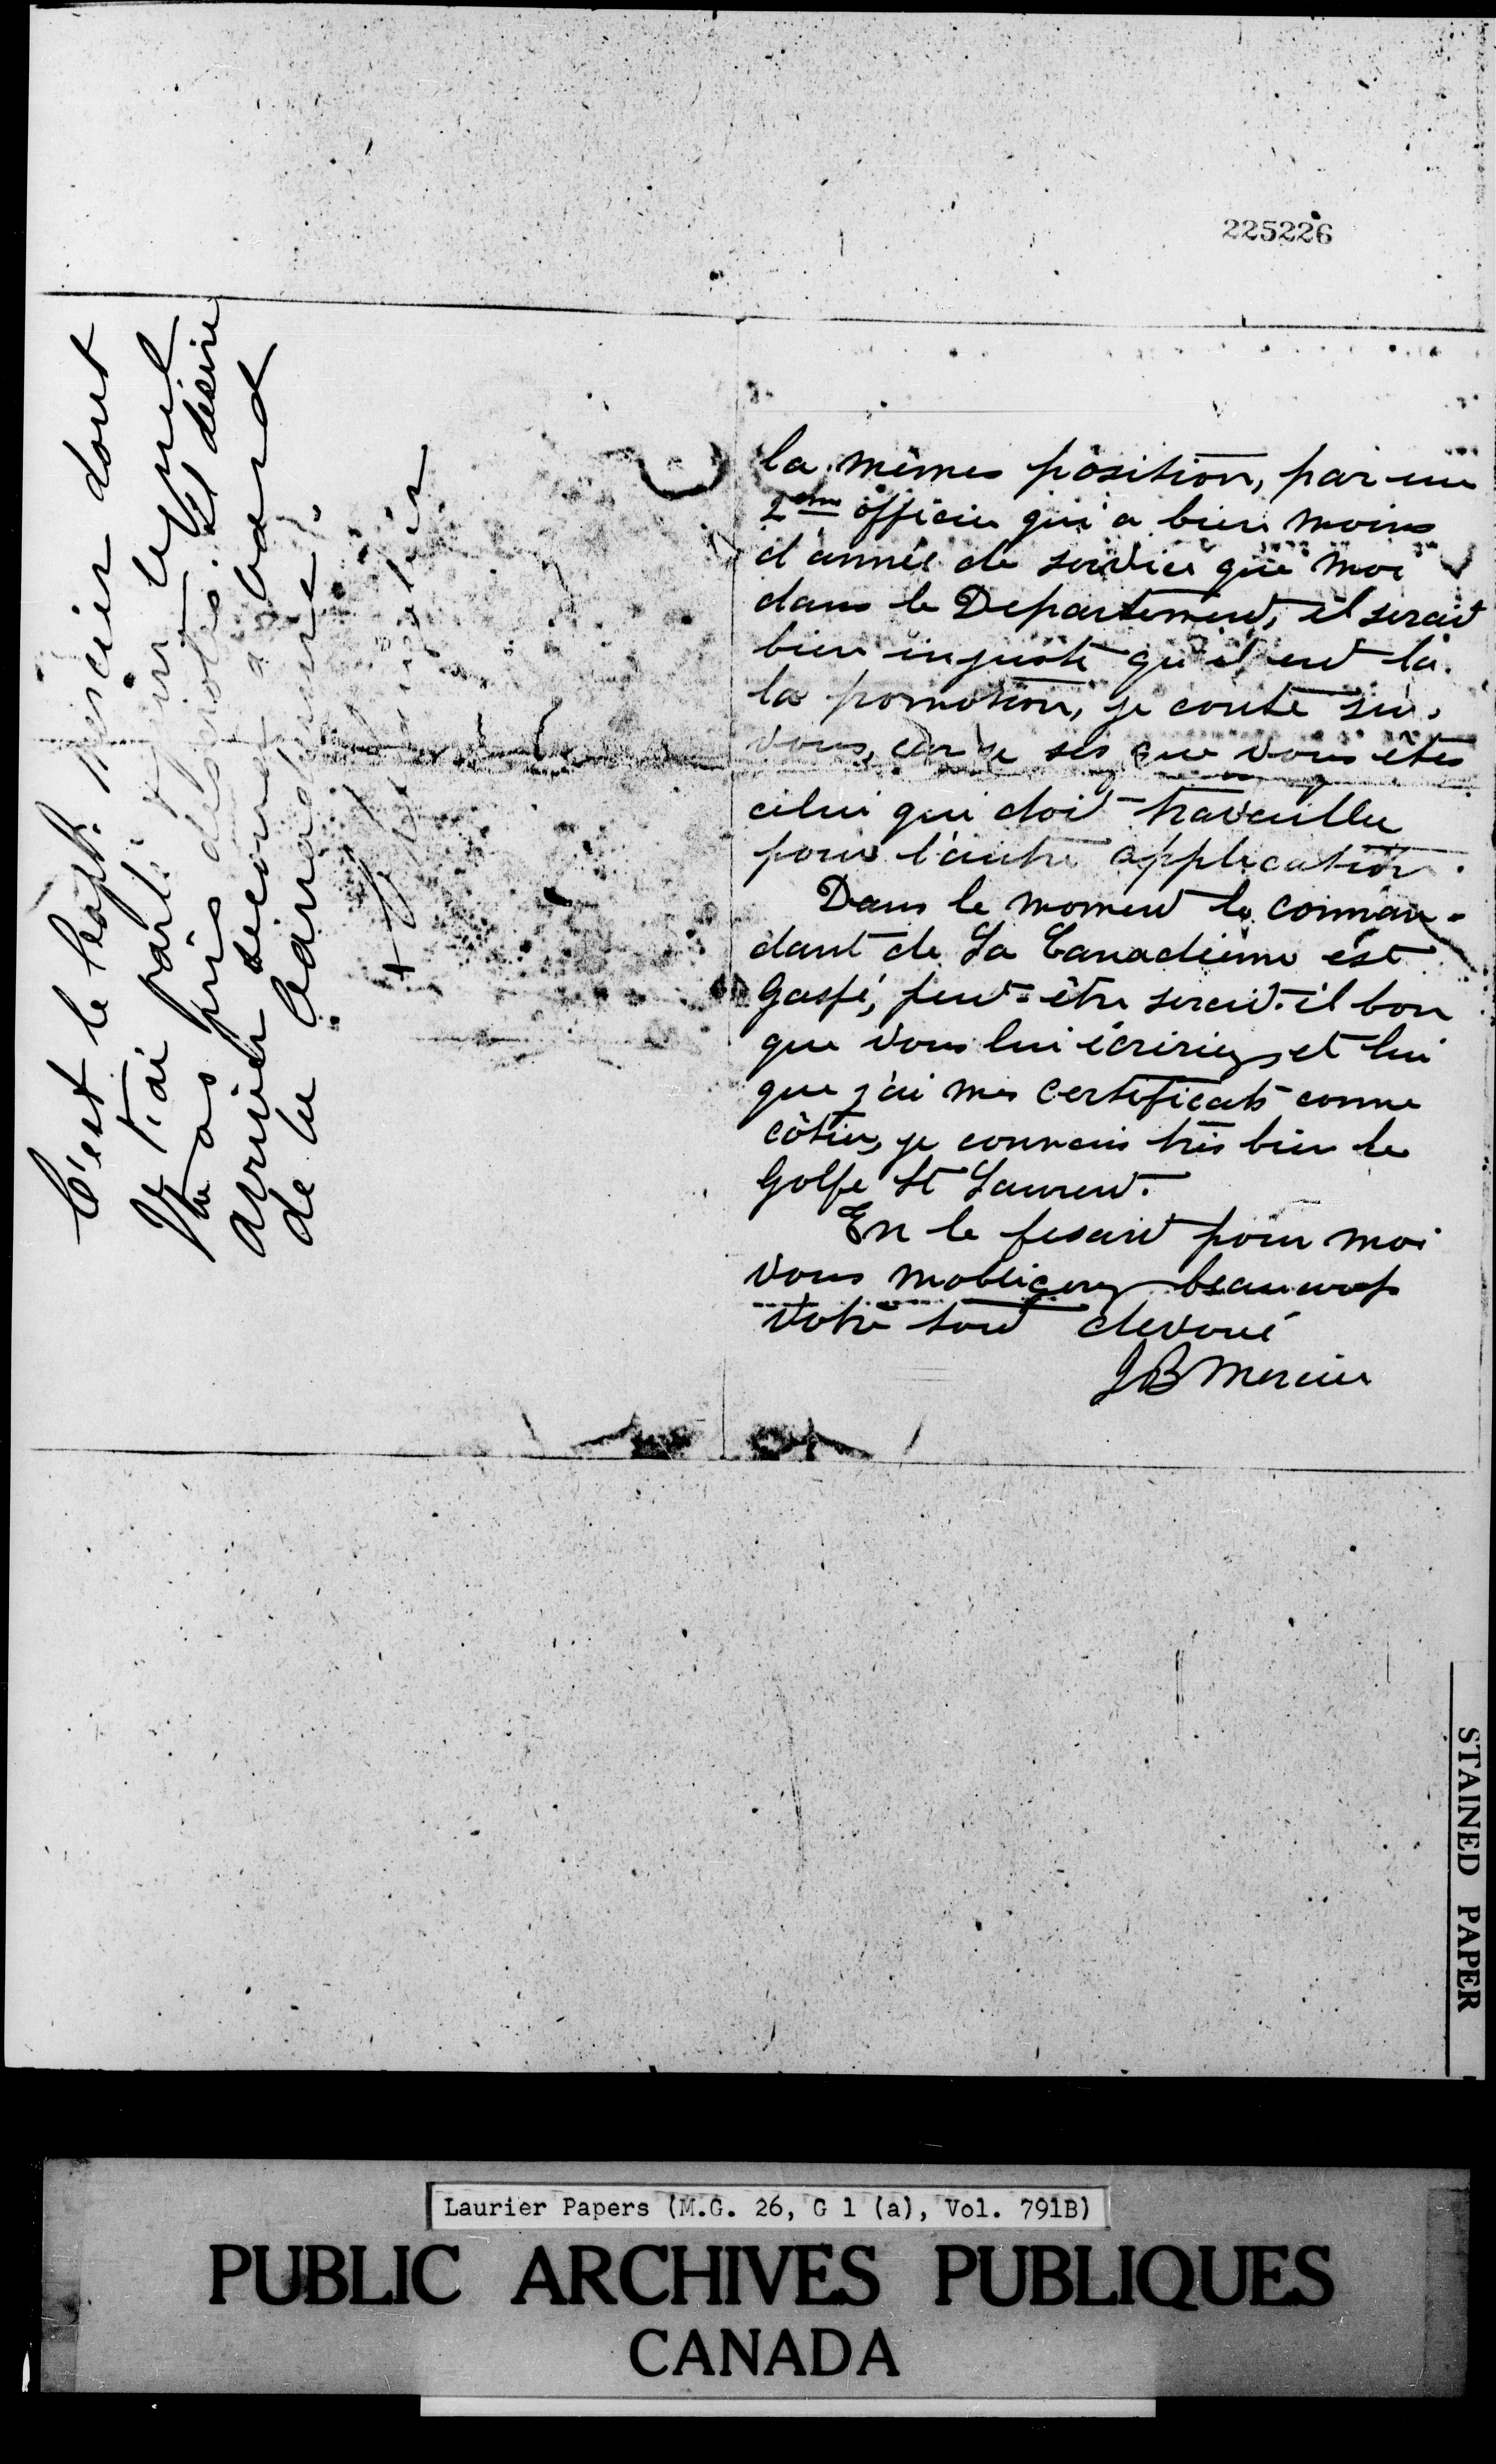 225226
C'est le Capt. Mercier dont
je t'ai parlé et
Tu as pris des notes. Il désire
arriver second à bord
de la Canadienne.
la mêmes position, par un
2eme officier qui a bien moins
d'année de service que moi
dans le Departement, il serait
bien injuste qu'il eut la
la promotion, je conte sur
vous, car je ses que vous êtes
celui qui doit travailler
pour l'autre application.
Dans le moment le comman-
dant de La Canadienne est
Gaspé, peut-être serait-il bon
que vous lui écririez, et lui
que j'ai mes certificats comme
côtier, je connais très bien le
Golfe St Laurent.
En le fesant pour moi
vous mobligerez beaucoup
Votre tout devoué
JB Mercier
STAINED PAPER
Laurier Papers (M.G. 26, G 1 (a), Vol. 791B)
PUBLIC ARCHIVES PUBLIQUES
CANADA